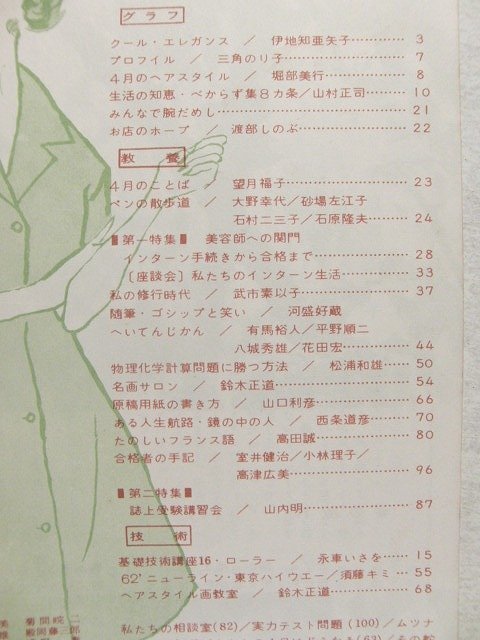 グラフ
クール・エレガンス ／ 伊地知亜矢子…………… 3
プロフイル ／ 三角のり子…………… 7
４月のヘアスタイル ／ 堀部美行…………… 8
生活の知恵・べからず集８カ条／山村正司…………10
みんなで腕だめし……………………21
お店のホープ ／ 渡部しのぶ……………22
教養
４月のことば ／ 望月福子……………23
ペンの散歩道 ／ 大野幸代／砂場左江子
石村二三子／石原隆夫…………24
■第一特集■ 美容師への関門
インターン手続きから合格まで……………28
〔座談会〕私たちのインターン生活……………33
私の修行時代 ／ 武市素以子……………37
随筆・ゴシップと笑い ／ 河盛好蔵
へいてんじかん ／ 有馬裕人／平野順二
八城秀雄／花田宏…………44
物理化学計算問題に勝つ方法 ／ 松浦和雄……50
名画サロン ／ 鈴木正道……………54
原稿用紙の書き方 ／ 山口利彦……………66
ある人生航路・鏡の中の人 ／ 西条道彦………70
たのしいフランス語 ／ 高田誠……………80
合格者の手記 ／ 室井健治／小林理子／
高津広美……………96
■第二特集■
誌上受験講習会 ／ 山内明……………87
技術
基礎技術講座16・ローラー ／ 永車いさを……15
62’ニューライン・東京ハイウエー／須藤キミ…55
ヘアスタイル画教室 ／ 鈴木正道……………68
私たちの相談室(82)／実力テスト問題(100)／ムツナ